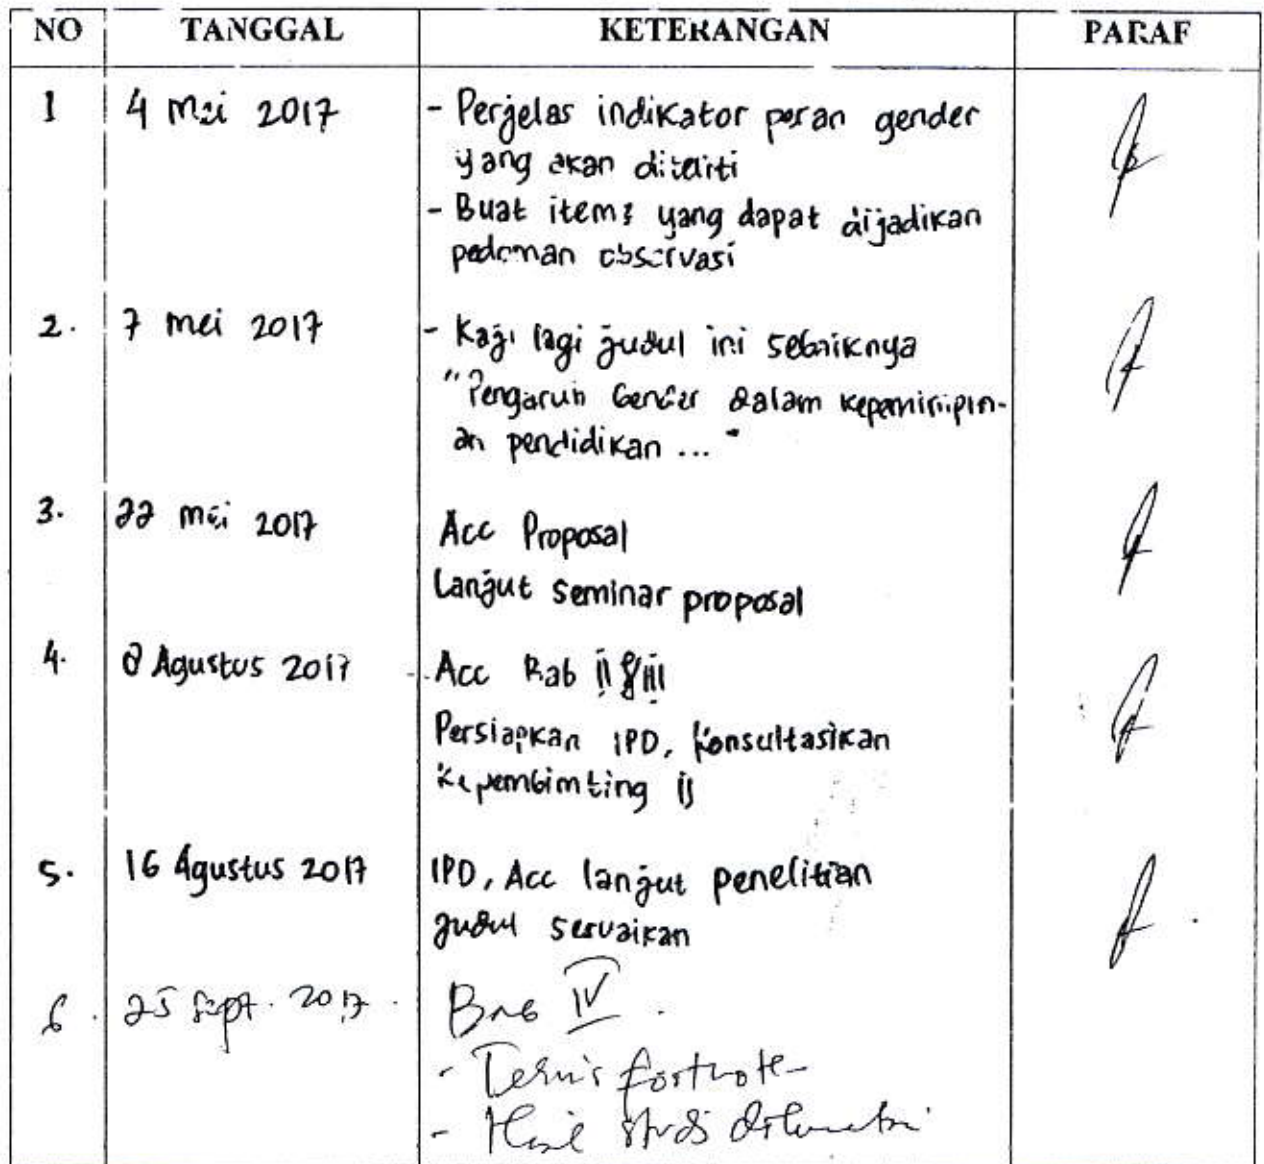 NO TANGGAL KETERANGAN PARAF
1 4 Mei 2017 - Perjelas indikator peran gender
yang akan diteliti
- Buat item2 yang dapat dijadikan
pedoman observasi
2. 7 Mei 2017 - Kaji lagi judul ini sebaiknya
"Pengaruh Gender dalam kepemimpin-
an pendidikan ..."
3. 22 Mei 2017 Acc Proposal
Lanjut seminar proposal
4. 8 Agustus 2017 Acc Bab II & III
Persiapkan IPD, konsultasikan
ke pembimbing II
5. 16 Agustus 2017 IPD, Acc lanjut penelitian
judul sesuaikan
6. 25 Sept. 2017. Bab IV.
- Teknis footnote
- Hasil studi